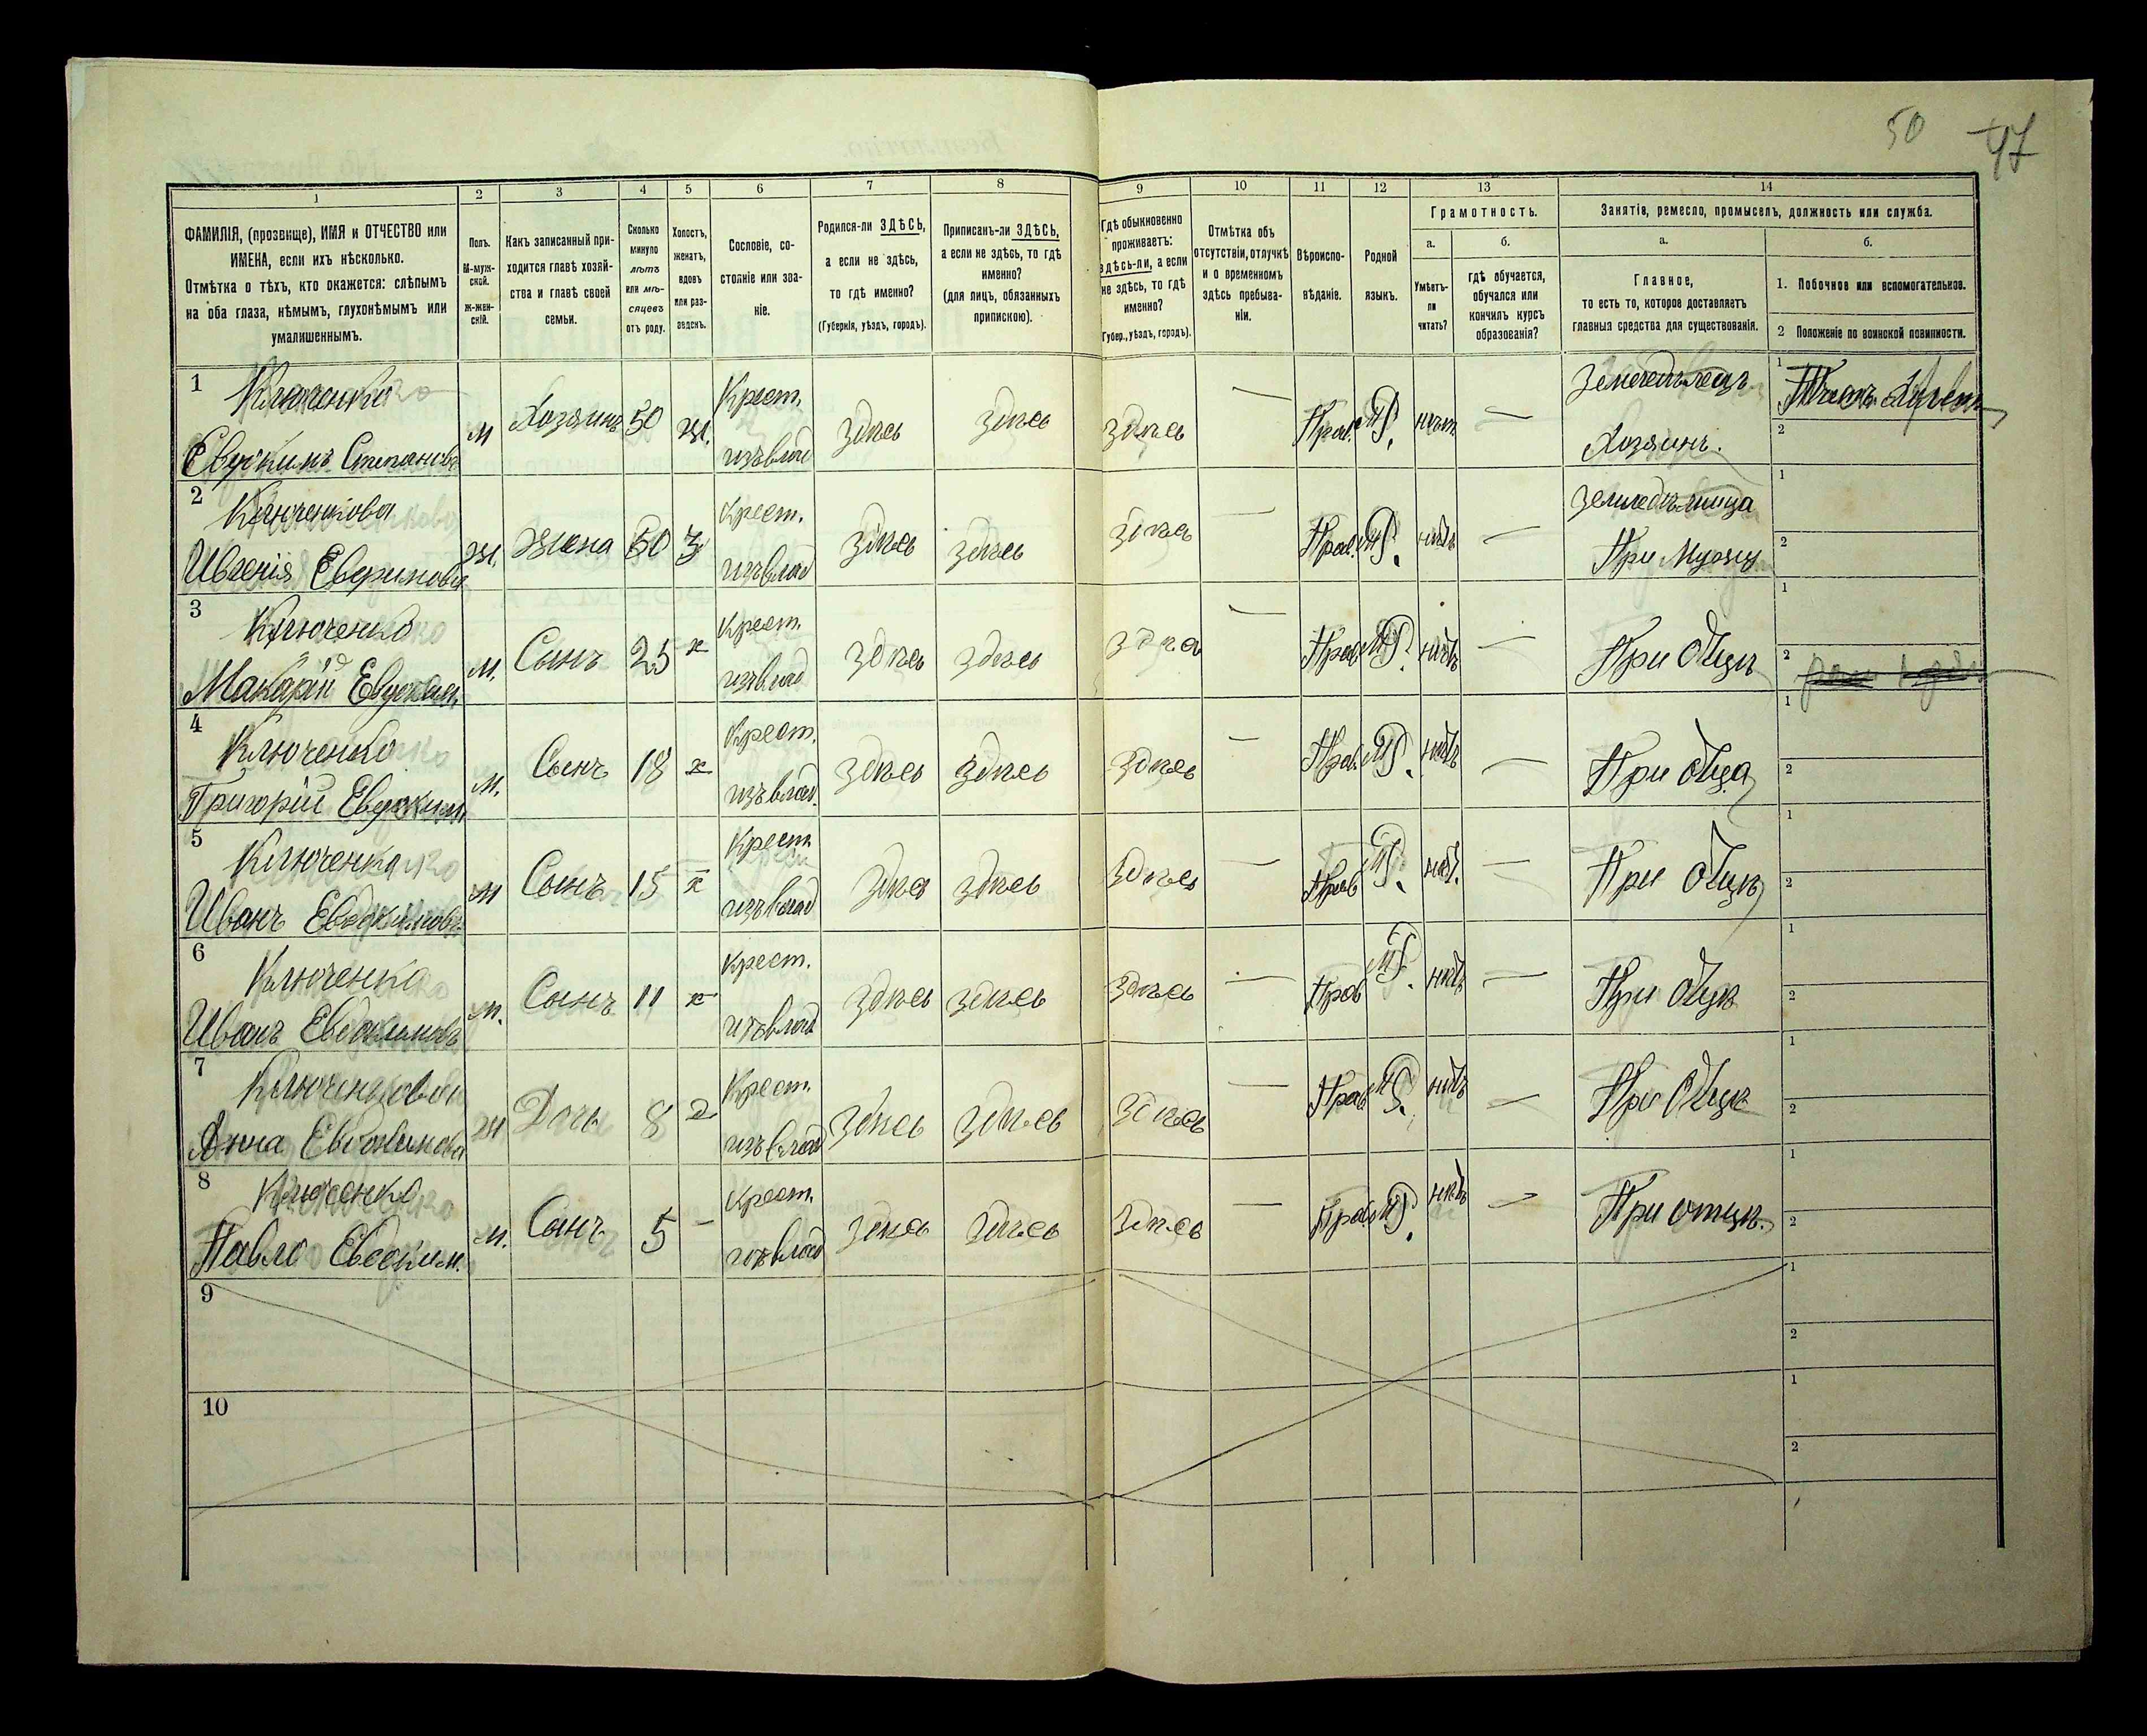 50 47
1 2 3 4 5 6 7 8 9 10 11 12 13 14
ФАМИЛІЯ, (прозвище), ИМЯ и ОТЧЕСТВО или
ИМЕНА, если ихъ нѣсколько.
Отмѣтка о тѣхъ, кто окажется: слѣпымъ
на оба глаза, нѣмымъ, глухонѣмымъ или
умалишеннымъ.
Полъ.
М-муж-
ской.
ж-жен-
скій.
Какъ записанный при-
ходится главѣ хозяй-
ства и главѣ своей
семьи.
Сколько
минуло
лѣтъ
или мѣ-
сяцевъ
отъ роду.
Холостъ,
женатъ,
вдовъ
или раз-
веденъ.
Сословіе, со-
стояніе или зва-
ніе.
Родился-ли ЗДѢСЬ,
а если не здѣсь,
то гдѣ именно?
(Губернія, уѣздъ, городъ).
Приписанъ-ли ЗДѢСЬ,
а если не здѣсь, то гдѣ
именно?
(для лицъ, обязанныхъ
припискою).
Гдѣ обыкновенно
проживаетъ:
здѣсь-ли, а если
не здѣсь, то гдѣ
именно?
Губер., уѣздъ, городъ).
Отмѣтка объ
отсутствіи, отлучкѣ
и о временномъ
здѣсь пребыва-
ніи.
Вѣроиспо-
вѣданіе.
Родной
языкъ.
Грамотность.
а. б.
Умѣетъ-
ли
читать?
гдѣ обучается,
обучался или
кончилъ курсъ
образованія?
Занятія, ремесло, промыселъ, должность или служба.
а. б.
Главное,
то есть то, которое доставляетъ
главныя средства для существованія.
1. Побочное или вспомогательное.
2 Положеніе по воинской повинности.
1 Ключенко Крест. Земледѣлецъ 1
Евдокимъ Степановъ М Хозяинъ 50 ж. изъ влад здѣсь здѣсь здѣсь — Прав. МР. нѣтъ — Хозяинъ. 2
2 Ключенкова Крест. Земледѣлица 1
Ж. жена 50 З изъ влад здѣсь здѣсь здѣсь — Прав. МР. нѣтъ — При Мужу 2
3 Ключенко Крест. 1
М. Сынъ 25 х изъ влад здѣсь здѣсь здѣсь — Прав МР. нѣтъ — При Отцѣ 2
4 Ключенко Крест. 1
Григорій Евдоким. М. Сынъ 18 х изъ влад. здѣсь здѣсь здѣсь — Прав. МР. нѣтъ — При Отца 2
5 Ключенко Крест. 1
Иванъ Евдокимовъ М Сынъ 15 х изъ влад здѣсь здѣсь здѣсь — Прав МР. нѣт. — При Отцѣ 2
6 Ключенко Крест. 1
Иванъ Евдокимовъ М. Сынъ 11 х изъ влад здѣсь здѣсь здѣсь — Прав МР. нѣтъ — При Отцѣ 2
7 Ключенкова Крест. 1
Анна Евдокимова Ж Дочь 8 изъ влад здѣсь здѣсь здѣсь — Прав МР. нѣтъ — При Отцѣ 2
8 Ключенко Крест. 1
Павло Евдоким. М. Сынъ 5 — изъ влад здѣсь здѣсь здѣсь — Прав МР. нѣтъ — При отцѣ. 2
9 1
2
10 1
2